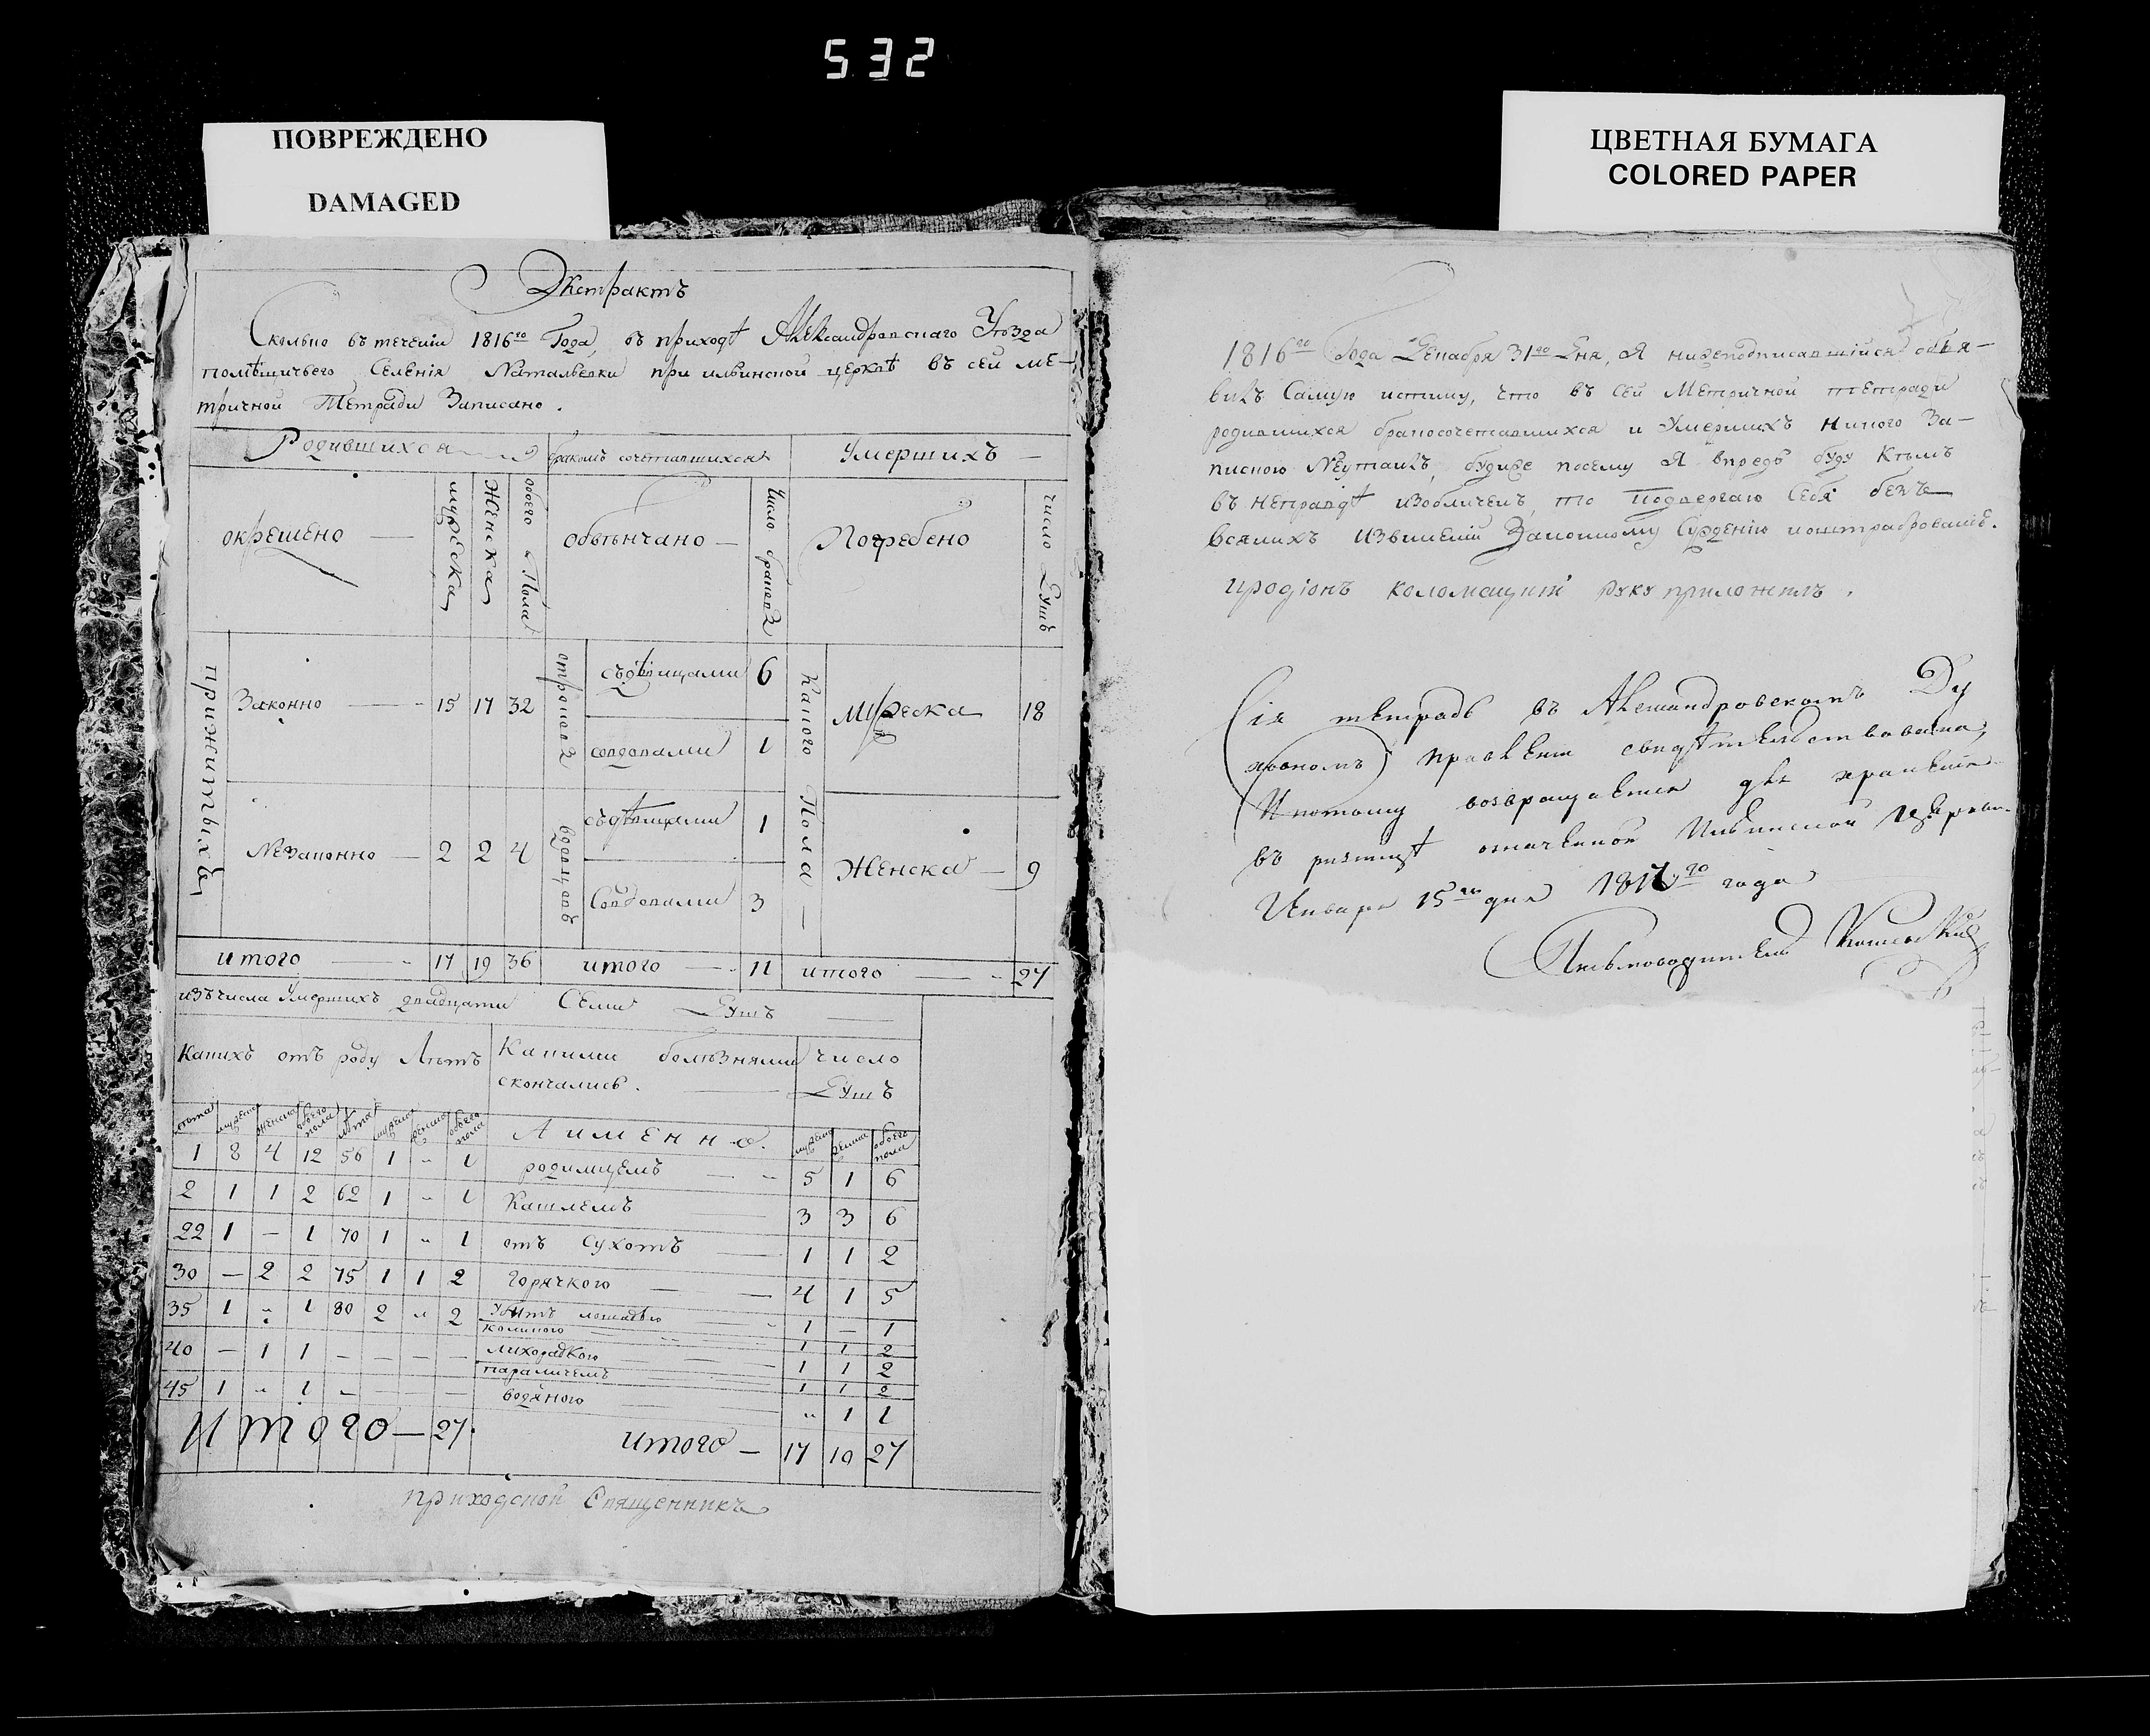 532
ПОВРЕЖДЕНО
DAMAGED
ЦВЕТНАЯ БУМАГА
COLORED PAPER
Экстрактъ
Сколько въ теченіи 1816го Года, въ приходѣ Александровскаго Уѣзда
помѣщичьего Селенія Натальевки при ильинской церквѣ въ сей ме-
тричной Тетради Записано.
Родившихся
бракомъ сочетавшихся
Умершихъ
окрещено
мужеска
Женска
обоего Пола
обвѣнчано
Число браковъ
Погребено
число Душъ
прижитыхъ
Законно 15 17 32
отроковъ
съдѣвицами 6
совдовами 1
Какого Пола
Мужеска 18
Незаконно 2 2 4
вдовцовъ
съдѣвицами 1
Совдовами 3
Женска 9
итого 17 19 36 итого 11 итого 27
изъ числа Умершихъ двадцати Семи Душъ
Какихъ отъ роду Лѣтъ
Какими болѣзнями скончались.
число Душъ
лѣта мужеска женска обоего пола лѣта мужеска женска обоего пола
А именно.
мужеска женска обоего пола
1 8 4 12 56 1 „ 1 родимцемъ 5 1 6
2 1 1 2 62 1 „ 1 Кашлемъ 3 3 6
22 1 — 1 70 1 „ 1 отъ Сухотъ 1 1 2
30 — 2 2 75 1 1 2 Горячкою 4 1 5
35 1 „ 1 80 2 „ 2 Убитъ лошадью 1 — 1
коликою 1 1 2
40 — 1 1 — — — — лихорадкою 1 1 2
параличемъ 1 1 2
45 1 „ 1 — — — — водяною „ 1 1
Итого — 27. итого — 17 10 27
приходской Священникъ
1816го Года Декабря 31го Дня, Я нижеподписавшійся объя-
вилъ Самую истину, что въ сей Метричной тетради
родившихся бракосочетавшихся и Умершихъ никого За-
пискою Неутаилъ, будиже посему Я впредь буду Кѣмъ
въ неправдѣ изобличенъ, то Подвергаю Себя безъ
всякихъ извиненіи Законному Сужденію иоштрафованію.
иродіонъ коломацкій руку приложилъ.
Сія тетрадь въ Александровскомъ Ду
ховномъ правленіи свидѣтельствована,
И потому возвращается для храненія
въ ризницѣ означенной Ильинской Церкви.
Январь 15го дня 1817го года
Письмоводитель